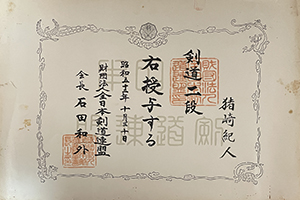 剣道二段
猪崎紀人
右授与する
昭和五十五年十月三十日
財団法人全日本剣道連盟
会長 石田和外